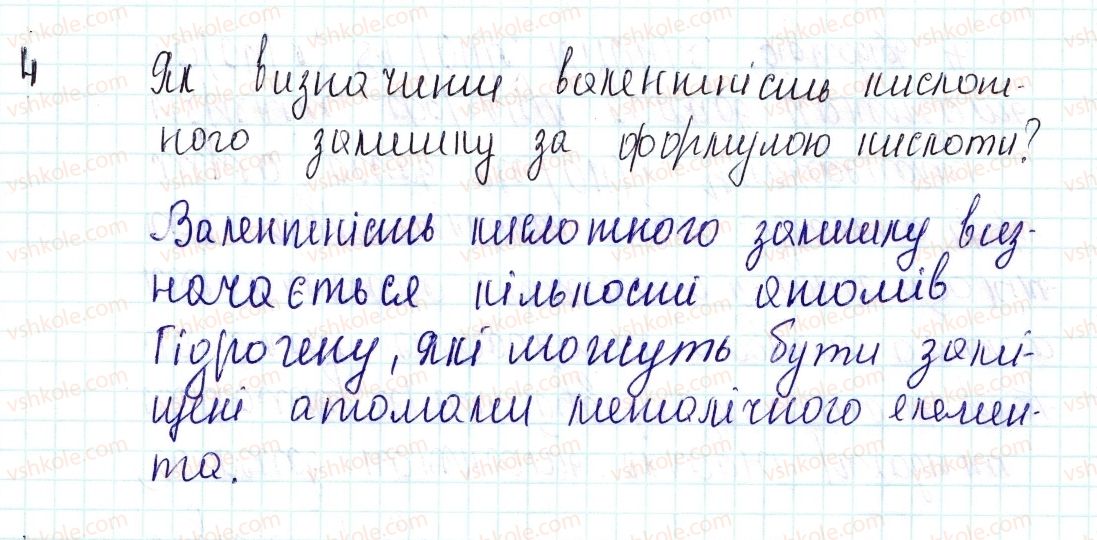 4 Як визначити валентність кислот-
ного залишку за формулою кислоти?
Валентність кислотного залишку виз-
начається кількості атомів
Гідрогену, які можуть бути залі-
щені атомами металічного елемен-
та.